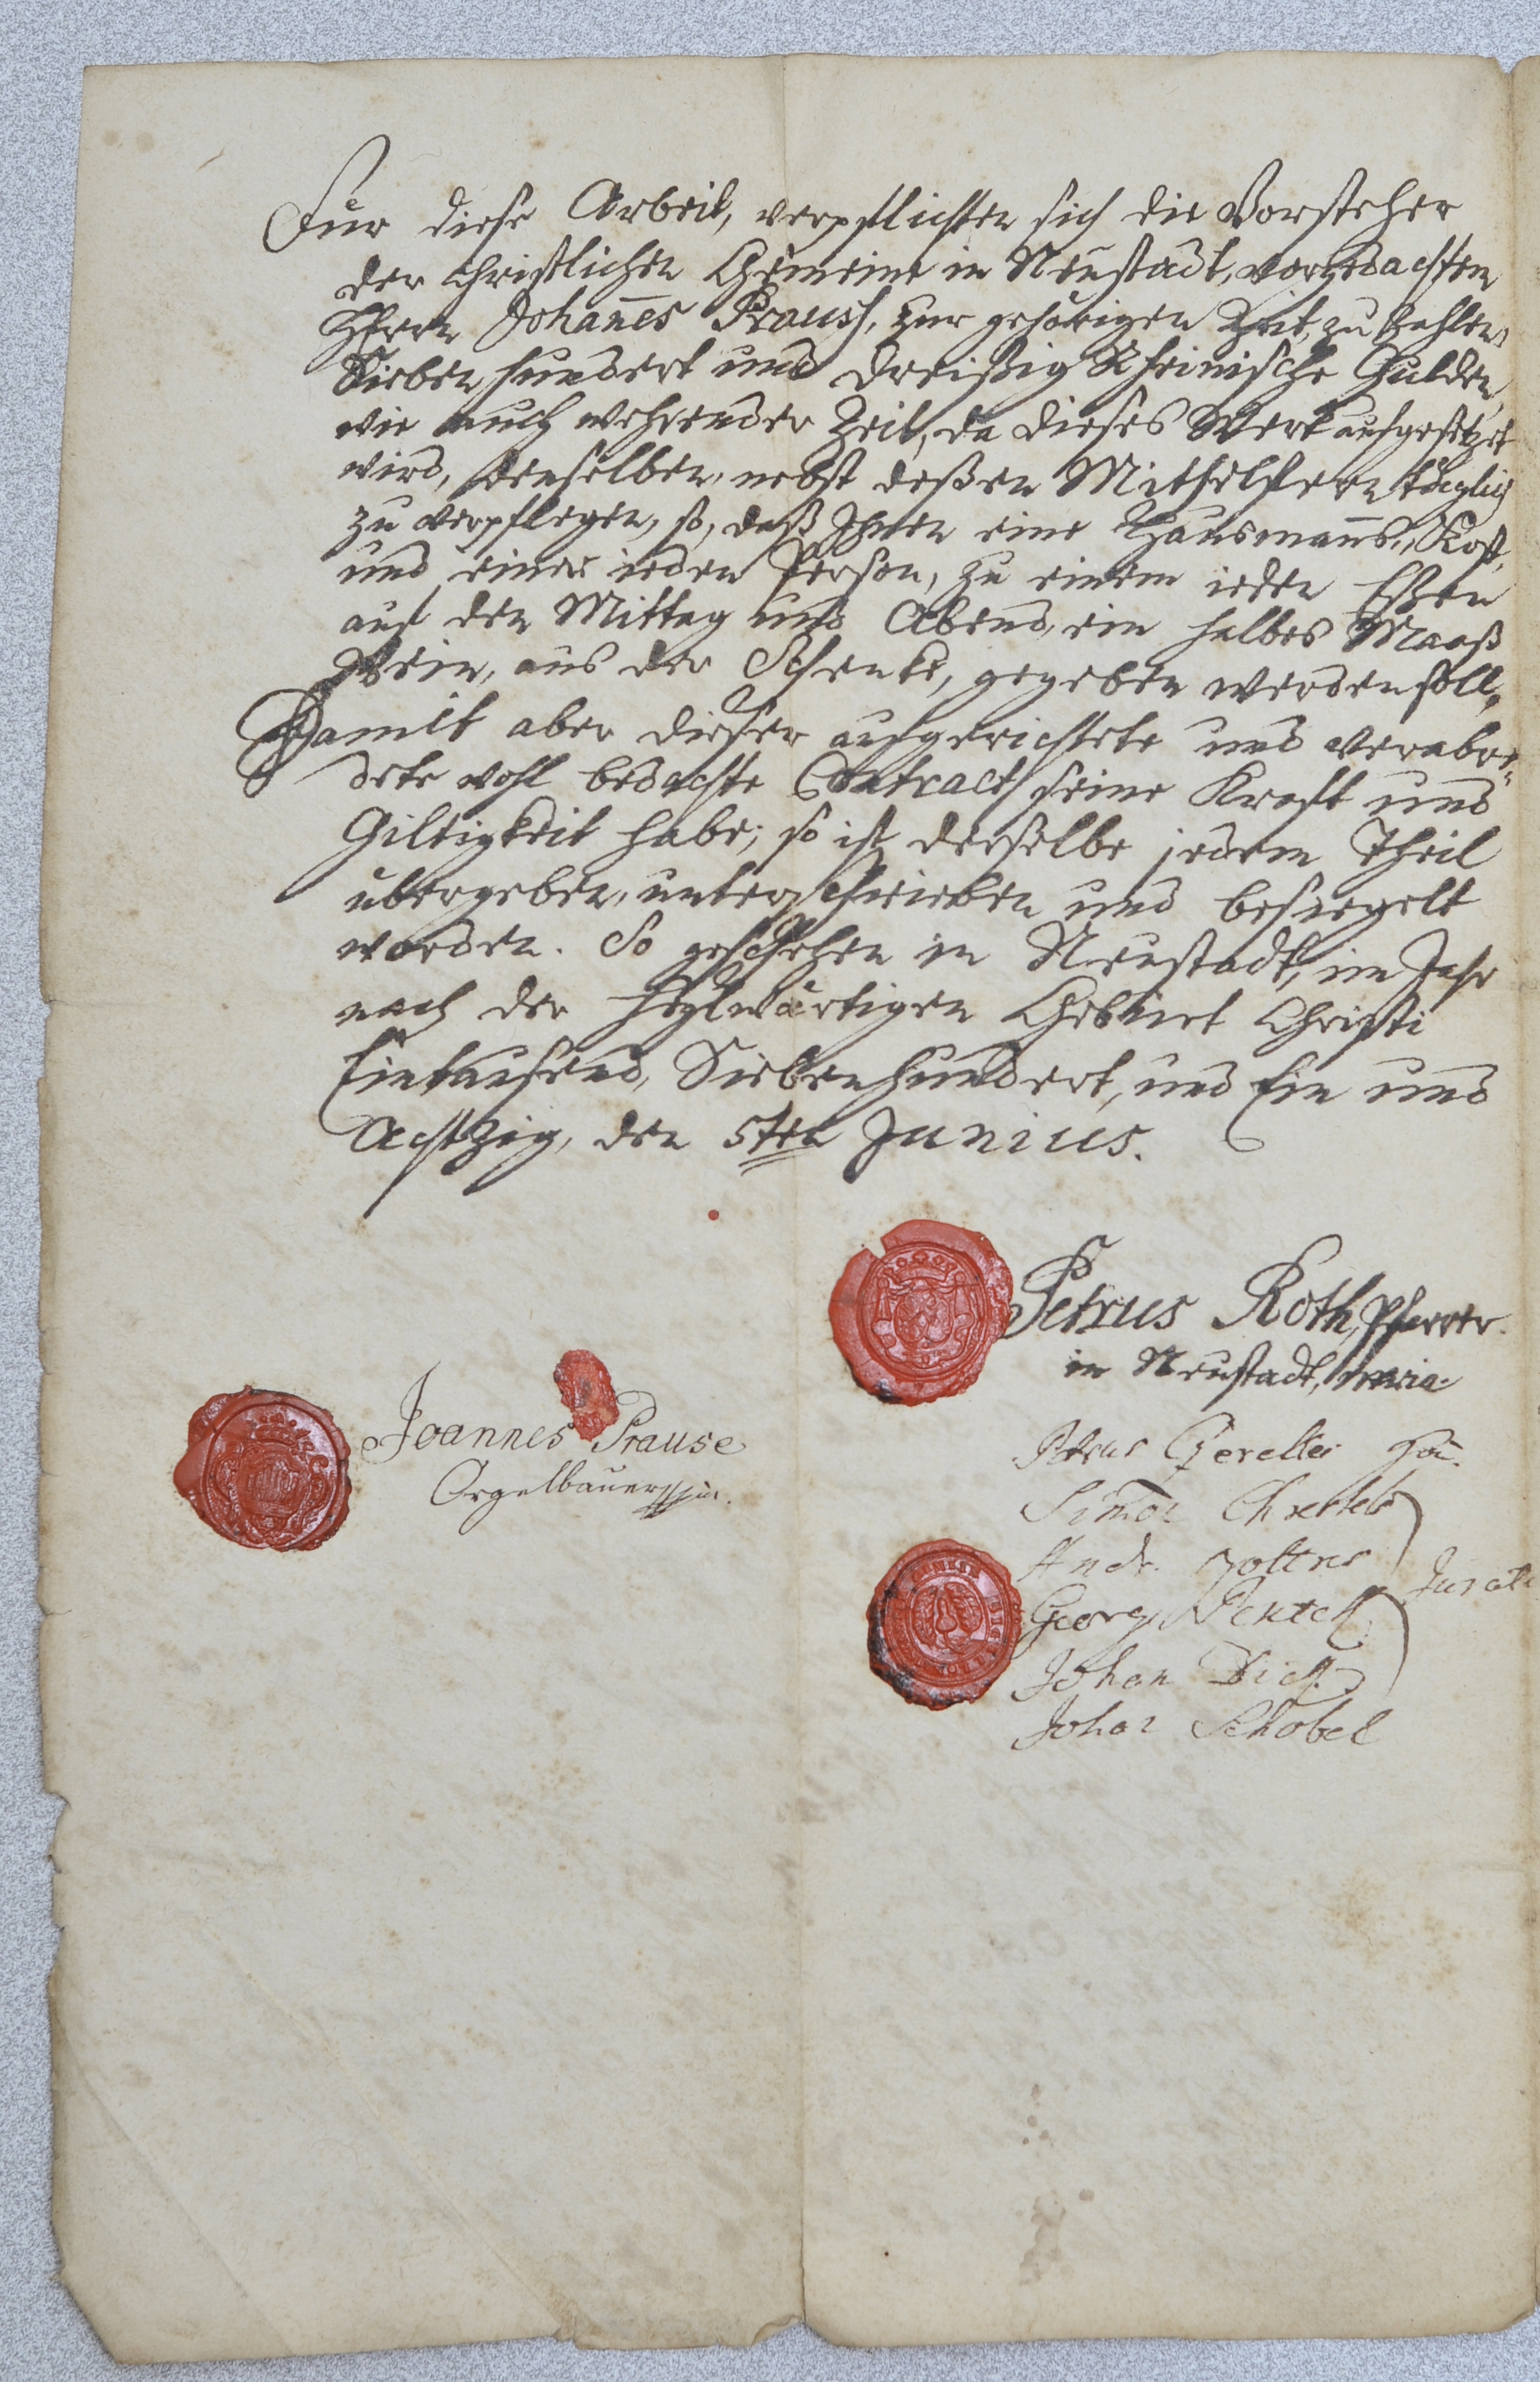 Für diese Arbeit, verpflichten sich die Vorsteher
der Christlichen Gemeine in Neustadt, vorgedachten
Herrn Johan̄es Prauss, zur gehörigen Zeit, zu zahlen,
Sieben hundert und dreißig Rheinische Gulden,
wie auch wehrender Zeit, da dieses Werk aufgesetzet
wird, denselben, nebst deßen Mithelfern täglich
zu verpflegen, so, daß Ihnen eine Hausman̄s-Kost,
und einer ieden Person, zu einem ieden Eßen
auf den Mittag und Abend, ein halbes Maaß
Wein, aus der Schenke, gegeben werden soll,
Damit aber dieser aufgerichtete und verabre-
dete wohl bedachte Contract seine Kraft und
Giltigkeit habe; so ist derselbe jedem Theil
übergeben, unterschrieben und besiegelt
worden. So geschehen in Neustadt, im Jahr
nach der heylwärtigen Geburt Christi
Eintausend, Siebenhundert, und Ein und
Achtzig, den 5ten Junius.
Petrus Roth, Pfarrer
in Neustadt,
Joannes Prause
Orgelbauer
Petrus Gereltes
Simon
Andr.
Georg
Johan
Johan Schobel
Jurati